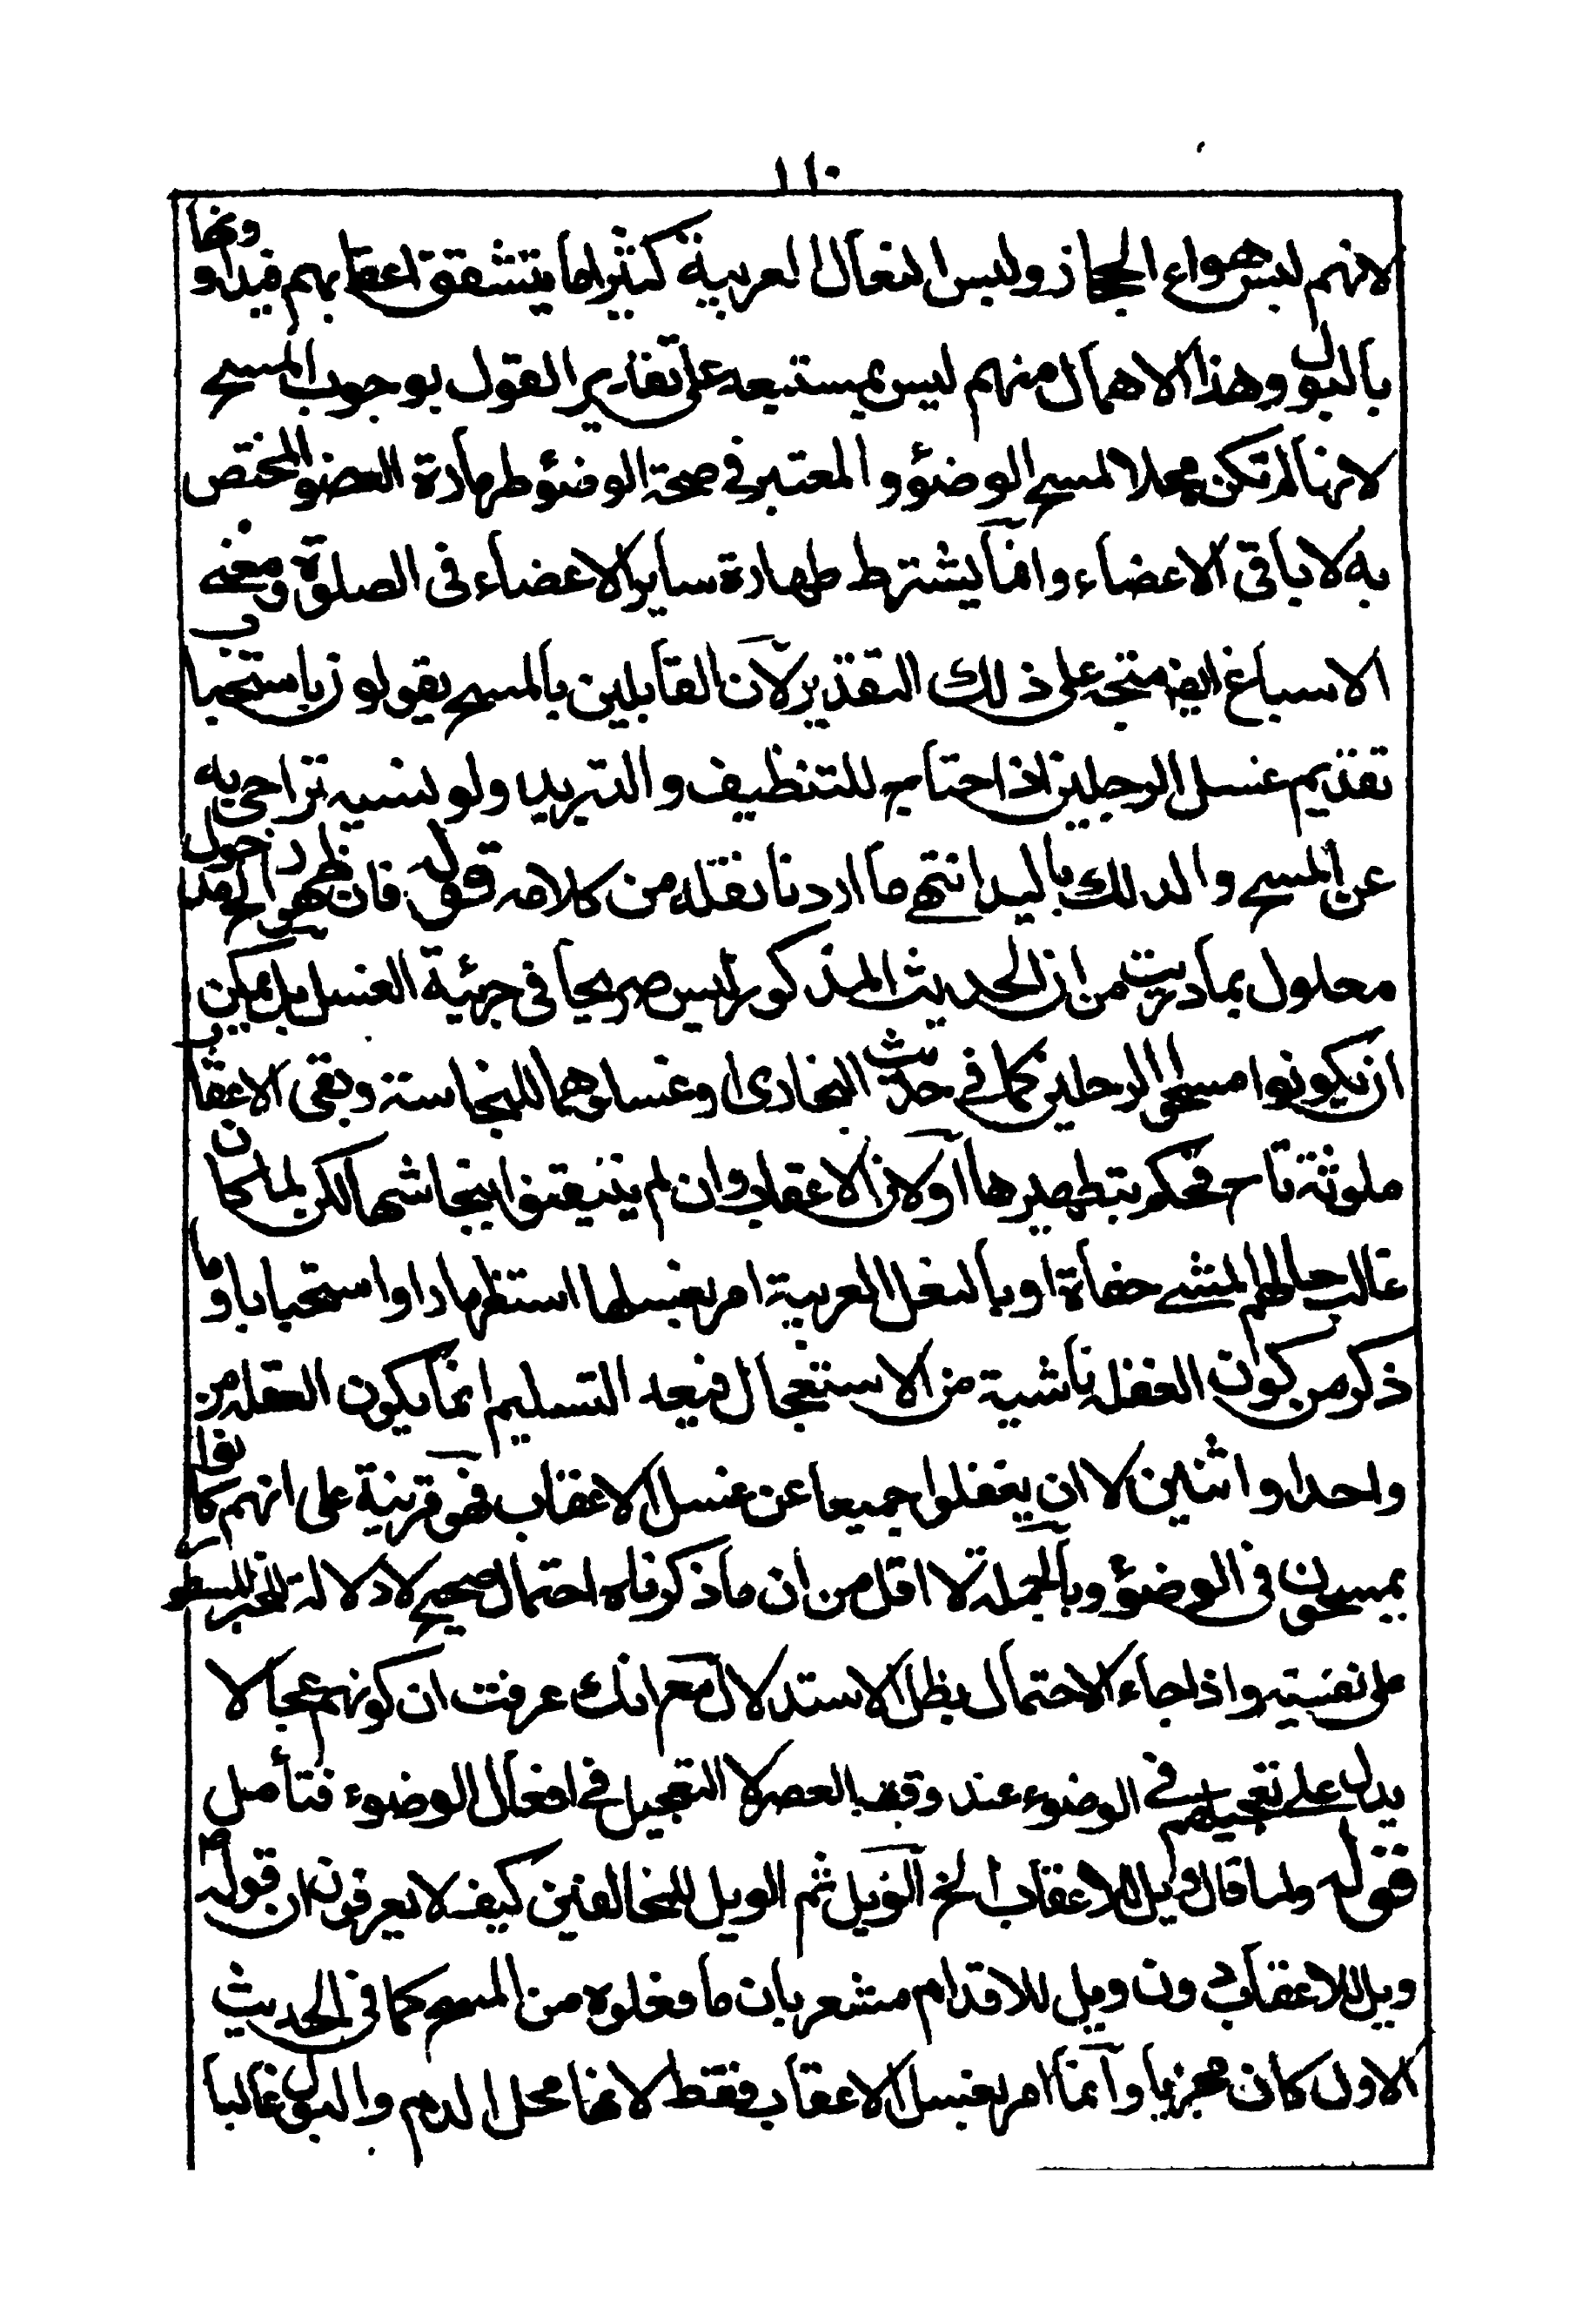 ١١٠
لانهم ليس هواء الحجاز وليس النعال العربية كثيرا ما يتشقق اعقابهم فيداوونها
بالبول وهذا الاهمال منهم ليس بمستبعد على تقدير القول بوجوب المسح
لانها لم تكن محلا لمسح الوضوٴ والمعتبر في صحة الوضوٴ طهارة العضو المختص
به لا باقي الاعضاء وانما يشترط طهارة ساير الاعضاء في الصلوة ومعنى
الاسباغ ايضا متجه على ذلك التقدير لان القايلين بالمسح يقولون باستحباب
تقديم غسل الرجلين اذا احتاج للتنظيف والتبريد ولو نسيه تراخى به
عن المسح والدلك باليد انتهى ما اردنا نقله من كلامه قوله فان ظهر دخول الخ هذا
معلول بما دريت من ان الحديث المذكور ليس صريحا في جزئية الغسل بل يمكن
ان يكونوا مسحوا الرجلين كما في حديث البخارى او غسلوهما للنجاسة وبقى الاعقاب
ملوثة تلوح فحكم بتطهيرها او لان الاعقاب وان لم يتيقنوا بنجاستها لكن لما كان
غالب حالهم المشي حفاة او بالنعل العربية امر بغسلها استظهارا او استحبابا وما
ذكر من كون الغفله ناشية من الاستعجال فبعد التسليم انما يكون الغفله من
واحد او اثنين لا ان يغفلوا جميعا عن غسل الاعقاب فهو قرينة على انهم كانوا
يمسحون في الوضوٴ وبالجملة لا اقل من ان ما ذكرناه احتمال صحيح لا دلالة للخبر
على نفيه واذا جاء الاحتمال بطل الاستدلال مع انك عرفت ان كونهم عجالا لا
يدل على تعجيلهم في الوضوء عند وقت العصر لا التعجيل في افعال الوضوء فتأمل
قوله ولما قال ويل للاعقاب الخ الويل ثم الويل للمخالفين كيف لا يعرفون ان قوله ص
ويل للاعقاب دون ويل للاقدام مشعر بان ما فعلوه من المسح كما في الحديث
الاول كان مجزيا وانما امر بغسل الاعقاب فقط لانها محل الدم والبول غالبا